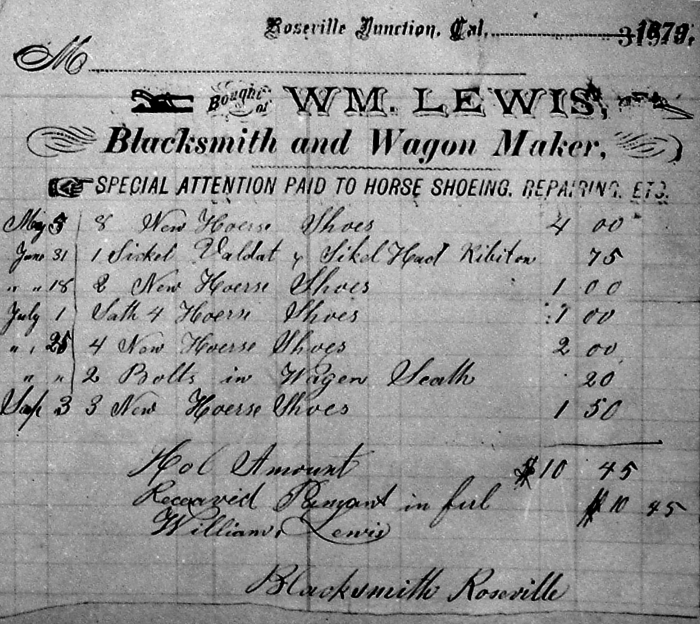 Roseville Junction, Cal. 1879.
M
Bought of WM. LEWIS,
Blacksmith and Wagon Maker,
SPECIAL ATTENTION PAID TO HORSE SHOEING, REPAIRING, ETC.
May 5 8 New Hoerse Shoes 4 00
June 31 1 Sickel Valdat & Sikel Had Kibiton 75
" " 18 2 New Hoerse Shoes 1 00
July 1 Sath 4 Hoerse Shoes 1 00
" " 25 4 New Hoerse Shoes 2 00
" " 2 Bolts in Wagen Seath 20
Sap 3 3 New Hoerse Shoes 1 50
Hol Amount $10 45
Receaved in ful $10 45
William Lewis
Blacksmith Roseville